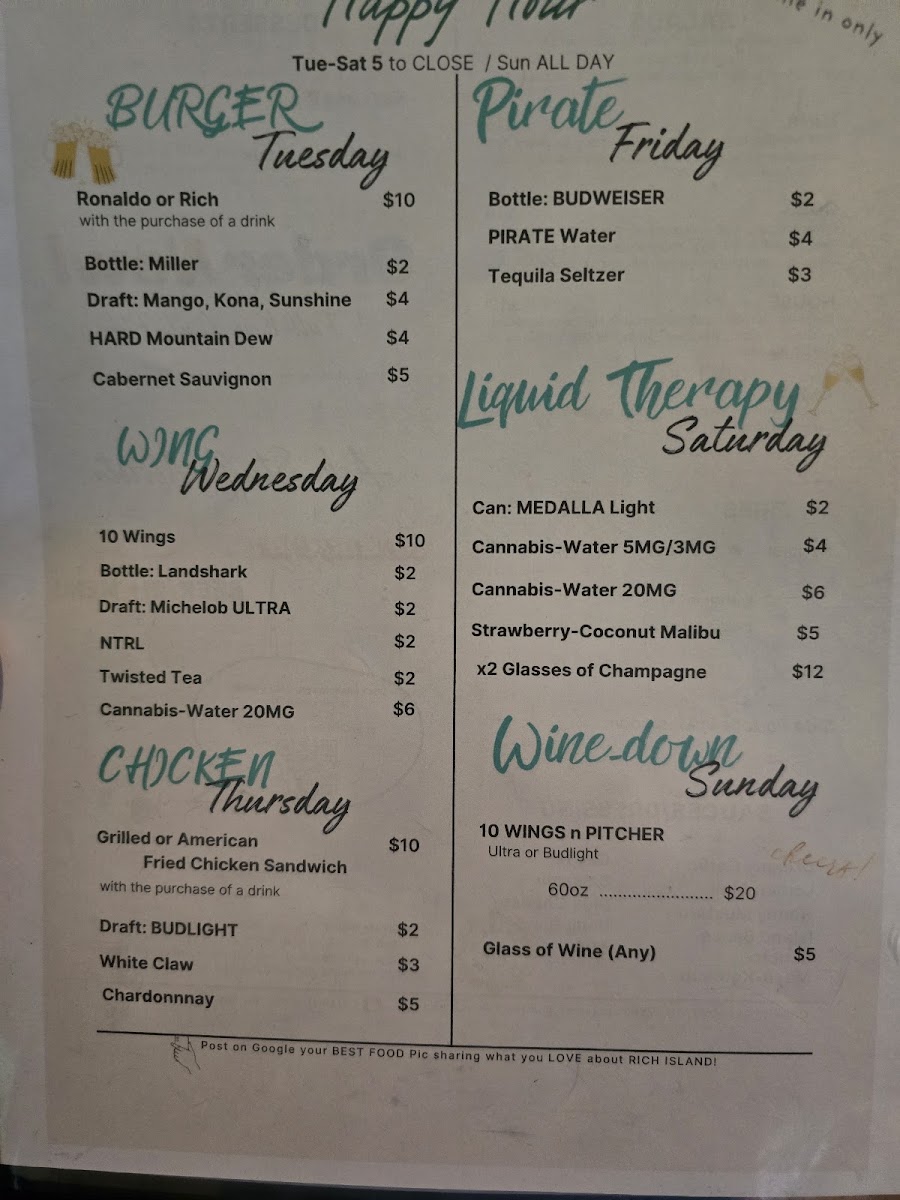 Happy Hour
in only
Tue-Sat 5 to CLOSE / Sun ALL DAY
BURGER
Tuesday
Ronaldo or Rich $10
with the purchase of a drink
Bottle: Miller $2
Draft: Mango, Kona, Sunshine $4
HARD Mountain Dew $4
Cabernet Sauvignon $5
WING
Wednesday
10 Wings $10
Bottle: Landshark $2
Draft: Michelob ULTRA $2
NTRL $2
Twisted Tea $2
Cannabis-Water 20MG $6
CHICKEN
Thursday
Grilled or American $10
Fried Chicken Sandwich
with the purchase of a drink
Draft: BUDLIGHT $2
White Claw $3
Chardonnnay $5
Pirate
Friday
Bottle: BUDWEISER $2
PIRATE Water $4
Tequila Seltzer $3
Liquid Therapy
Saturday
Can: MEDALLA Light $2
Cannabis-Water 5MG/3MG $4
Cannabis-Water 20MG $6
Strawberry-Coconut Malibu $5
x2 Glasses of Champagne $12
Wine-down
Sunday
10 WINGS n PITCHER
Ultra or Budlight
cheers!
60oz ........................ $20
Glass of Wine (Any) $5
Post on Google your BEST FOOD Pic sharing what you LOVE about RICH ISLAND!